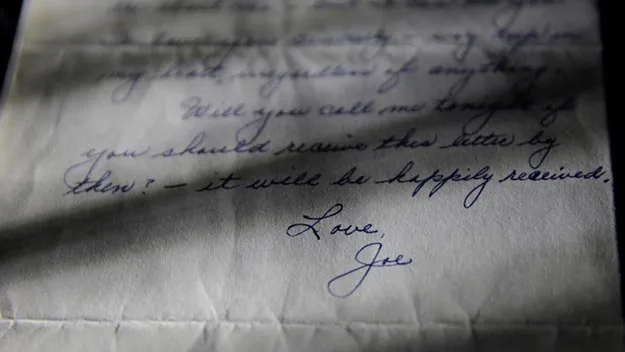 my heart, regardless of anything.
Will you call me tonight if
you should receive this letter by
then? – it will be happily received.
Love,
Joe